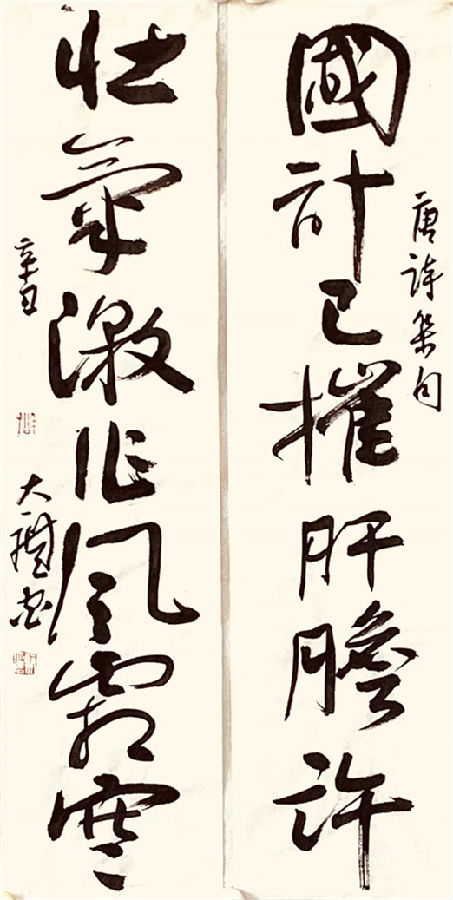 唐詩集句
國計已摧肝膽許
壯氣激作風霜寒
辛丑
大 書